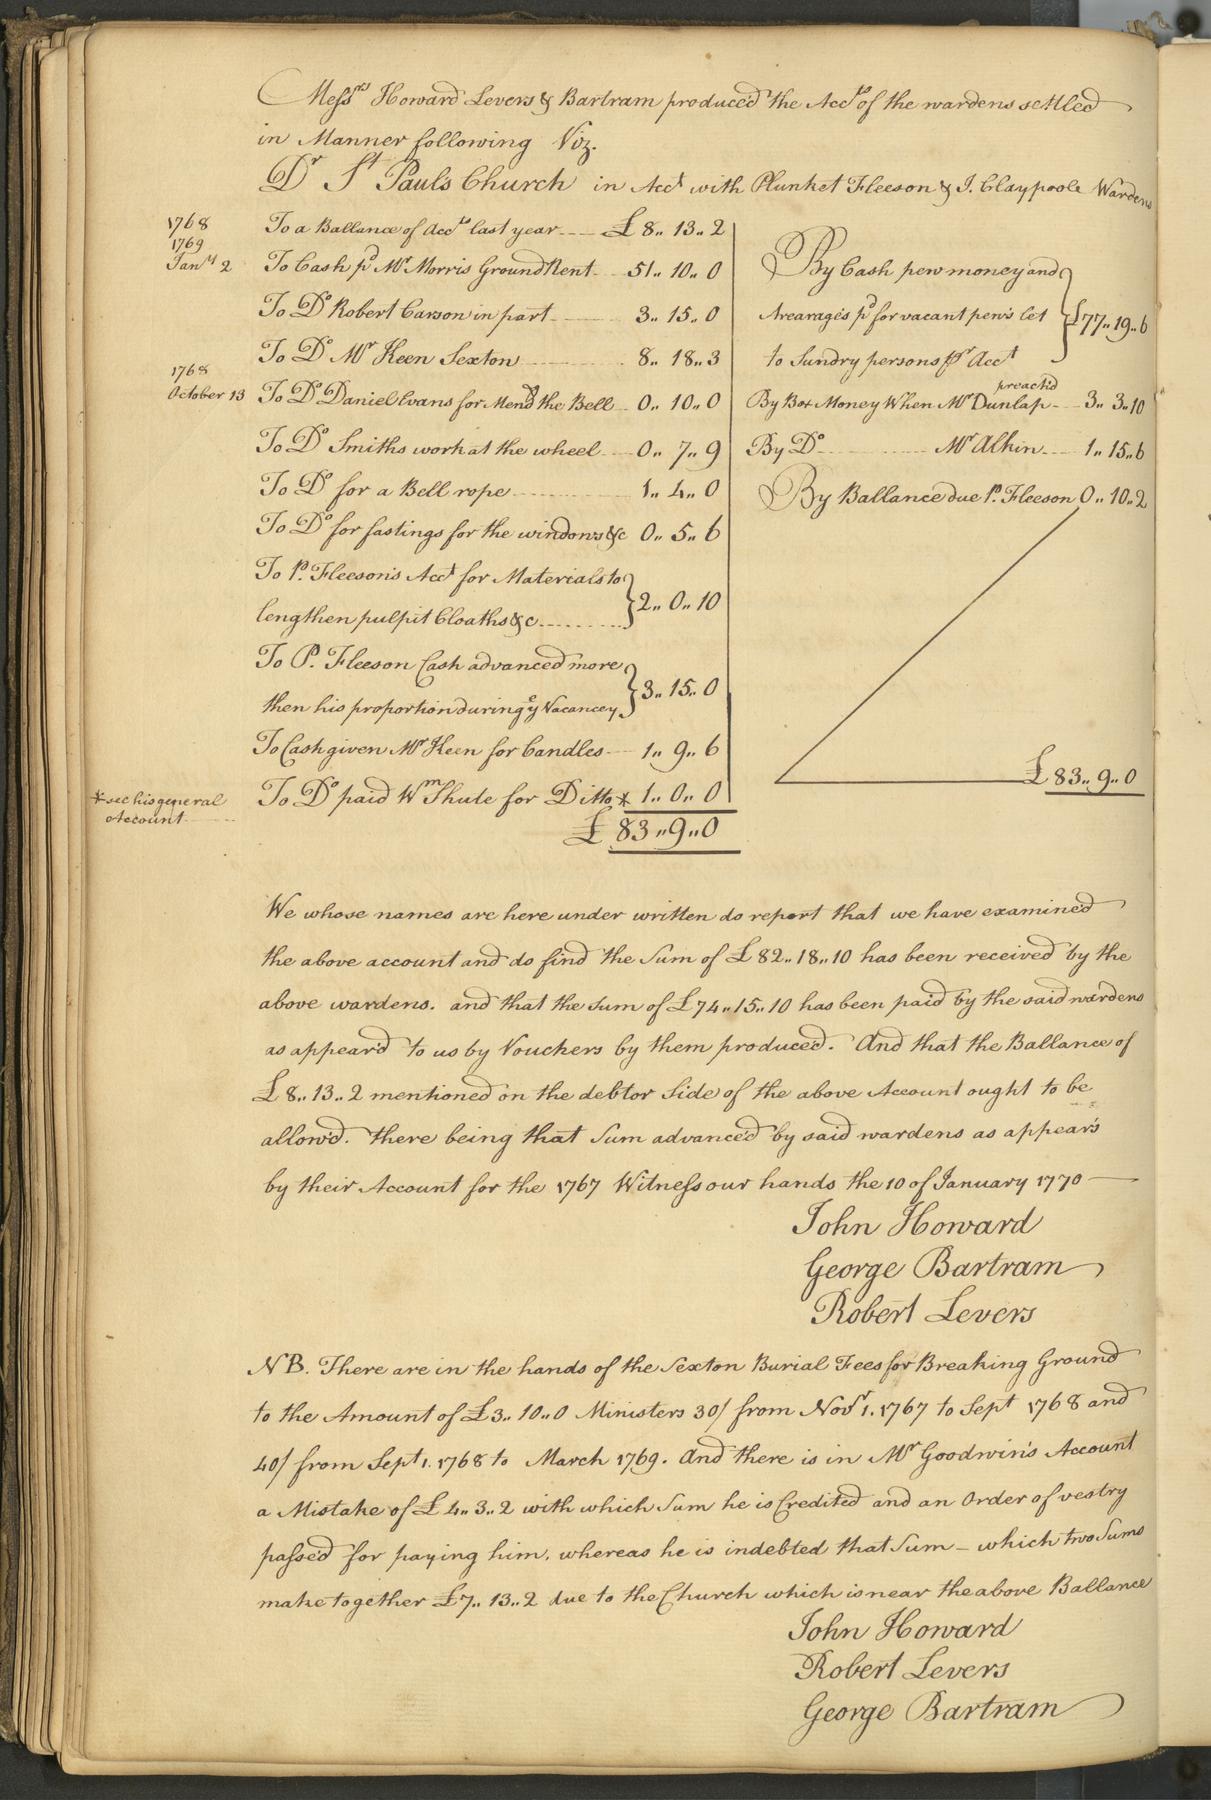 Messrs Howard Levers & Bartram produced the Accts of the wardens settled
in Manner following Viz.
Dr St Paul's Church in Acct with Plunket Fleeson & J. Claypoole Wardens
1768 To a Ballance of Accts last year £8.. 13.. 2
1769
Janry 2 To Cash pd Mr Morris Ground Rent 51.. 10.. 0
To Do Robert Carson in part 3.. 15.. 0
To Do Mr Keen Sexton 8.. 18.. 3
1768
October 13 To Do Daniel Evans for Mendg the Bell 0.. 10.. 0
To Do Smiths work at the wheel 0.. 7.. 9
To Do for a Bell rope 1.. 4.. 0
To Do for fastings for the windows &c 0.. 5.. 6
To P. Fleeson's Acct for Materials to
lengthen pulpit Cloaths &c } 2.. 0.. 10
To P. Fleeson Cash advanced more
then his proportion during ye Vacancey } 3.. 15.. 0
To Cash given Mr Keen for Candles 1.. 9.. 6
To Do paid Wm Shute for Ditto * 1.. 0.. 0
* see his general
Account
£ 83.. 9.. 0
By Cash pew money and
Arearages pd for vacant pew's let } £77.. 19.. 6
to Sundry persons pr Acct
preach'd
By Box Money When Mr Dunlap 3.. 3.. 10
By Do Mr Alkin 1.. 15.. 6
By Ballance due P. Fleeson 0.. 10.. 2
£ 83.. 9.. 0
We whose names are here under written do report that we have examined
the above account and do find the Sum of £82.. 18.. 10 has been received by the
above wardens. and that the sum of £74.. 15.. 10 has been paid by the said wardens
as appear'd to us by Vouchers by them produced. And that the Ballance of
£8.. 13.. 2 mentioned on the debtor Side of the above Account ought to be
allow'd. there being that Sum advanced by said wardens as appear's
by their Account for the 1767 Witness our hands the 10 of January 1770
John Howard
George Bartram
Robert Levers
NB. There are in the hands of the Sexton Burial Fees for Breaking Ground
to the Amount of £3.. 10.. 0 Ministers 30/ from Novr 1. 1767 to Sept 1768 and
40/ from Sept 1. 1768 to March 1769. And there is in Mr Goodwin's Account
a Mistake of £4.. 3.. 2 with which Sum he is Credited and an Order of vestry
passed for paying him, whereas he is indebted that Sum - which two Sums
make together £7.. 13.. 2 due to the Church which is near the above Ballance
John Howard
Robert Levers
George Bartram